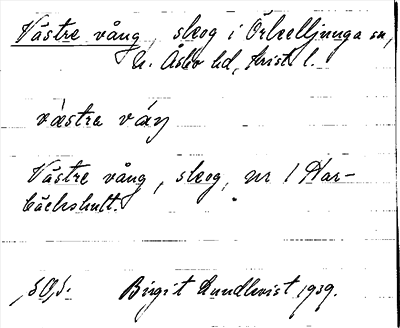 Västre vång, skog i Örkelljunga sn,
N. Åsbo hd, Krist l.
västre váŋ
Västre vång, skog, nr 1 Har-
bäckshult.
Birgit Lundkvist 1939.